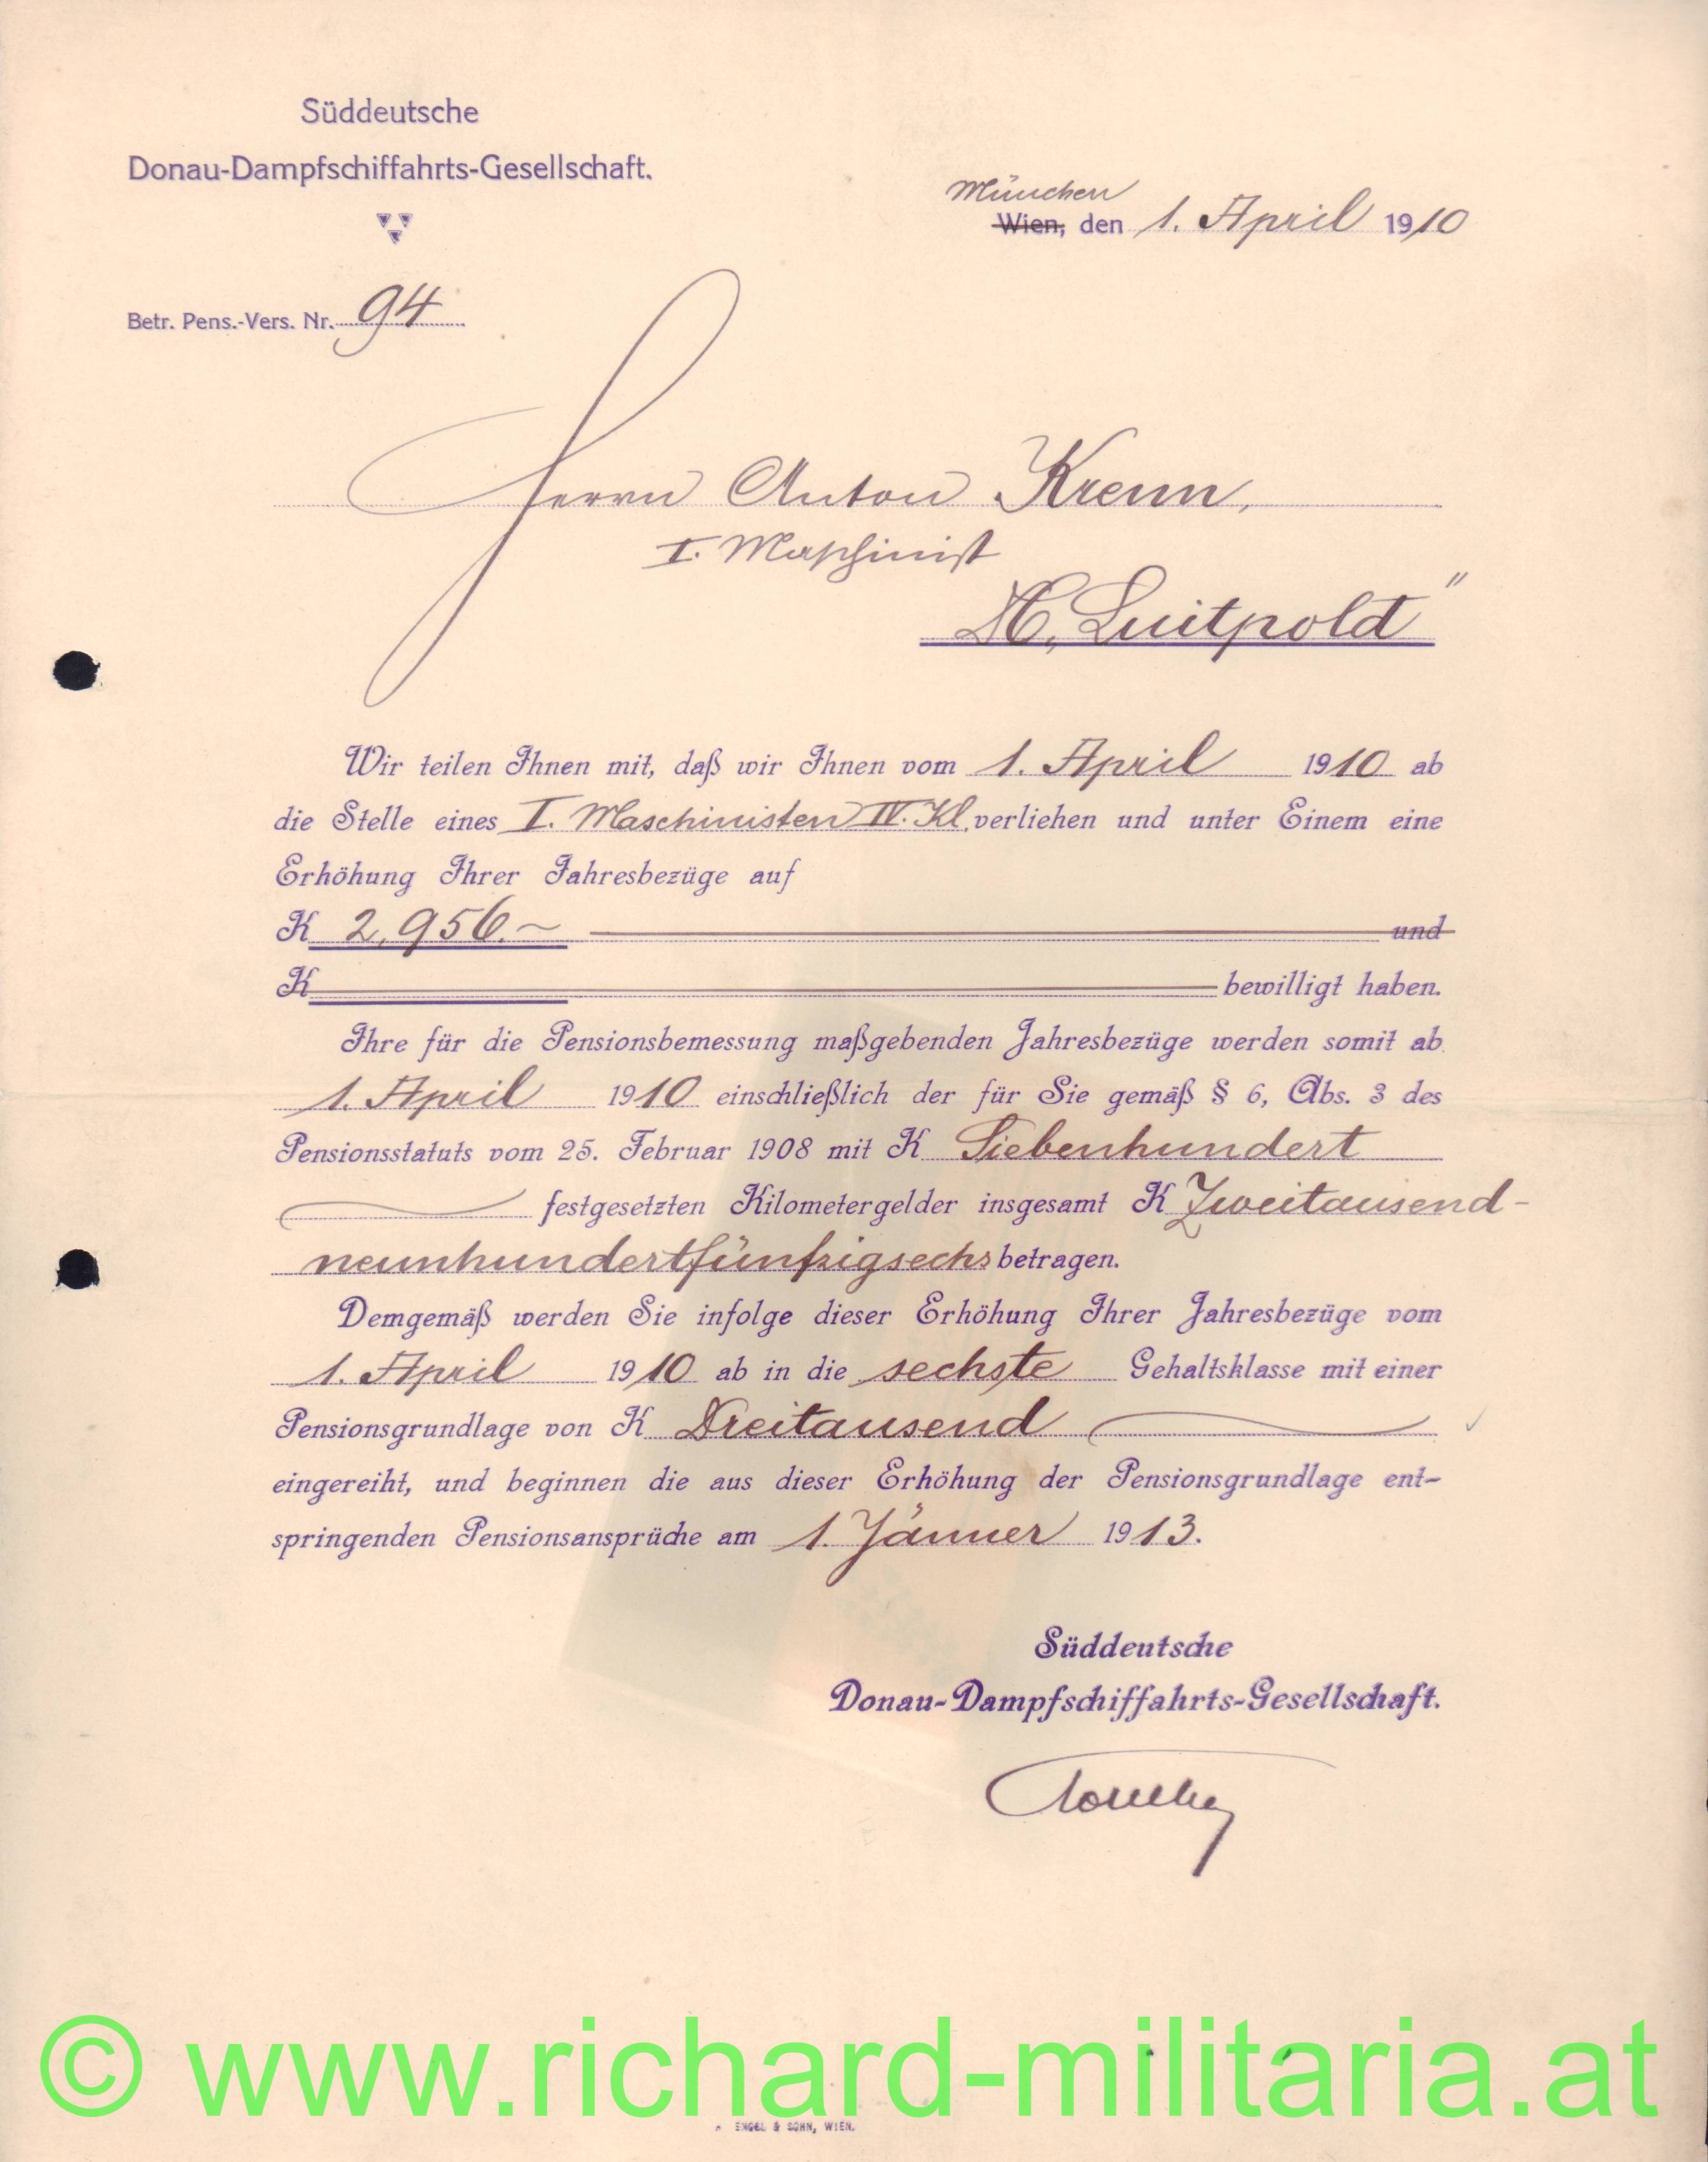 Süddeutsche
Donau-Dampfschiffahrts-Gesellschaft.
München
Wien, den 1. April 1910
Betr. Pens.-Vers. Nr. 94
Herrn Anton Krenn,
I. Maschinist
„Luitpold"
Wir teilen Ihnen mit, daß wir Ihnen vom 1. April 1910 ab
die Stelle eines I. Maschinisten IV. Kl. verliehen und unter Einem eine
Erhöhung Ihrer Jahresbezüge auf
K 2,956.~ und
K bewilligt haben.
Ihre für die Pensionsbemessung maßgebenden Jahresbezüge werden somit ab
1. April 1910 einschließlich der für Sie gemäß § 6, Abs. 3 des
Pensionsstatuts vom 25. Februar 1908 mit K Siebenhundert
festgesetzten Kilometergelder insgesamt K Zweitausend-
neunhundertfünfzigsechs betragen.
Demgemäß werden Sie infolge dieser Erhöhung Ihrer Jahresbezüge vom
1. April 1910 ab in die sechste Gehaltsklasse mit einer
Pensionsgrundlage von K Dreitausend
eingereiht, und beginnen die aus dieser Erhöhung der Pensionsgrundlage ent-
springenden Pensionsansprüche am 1. Jänner 1913.
Süddeutsche
Donau-Dampfschiffahrts-Gesellschaft.
© www.richard-militaria.at
ENGEL & SOHN, WIEN.